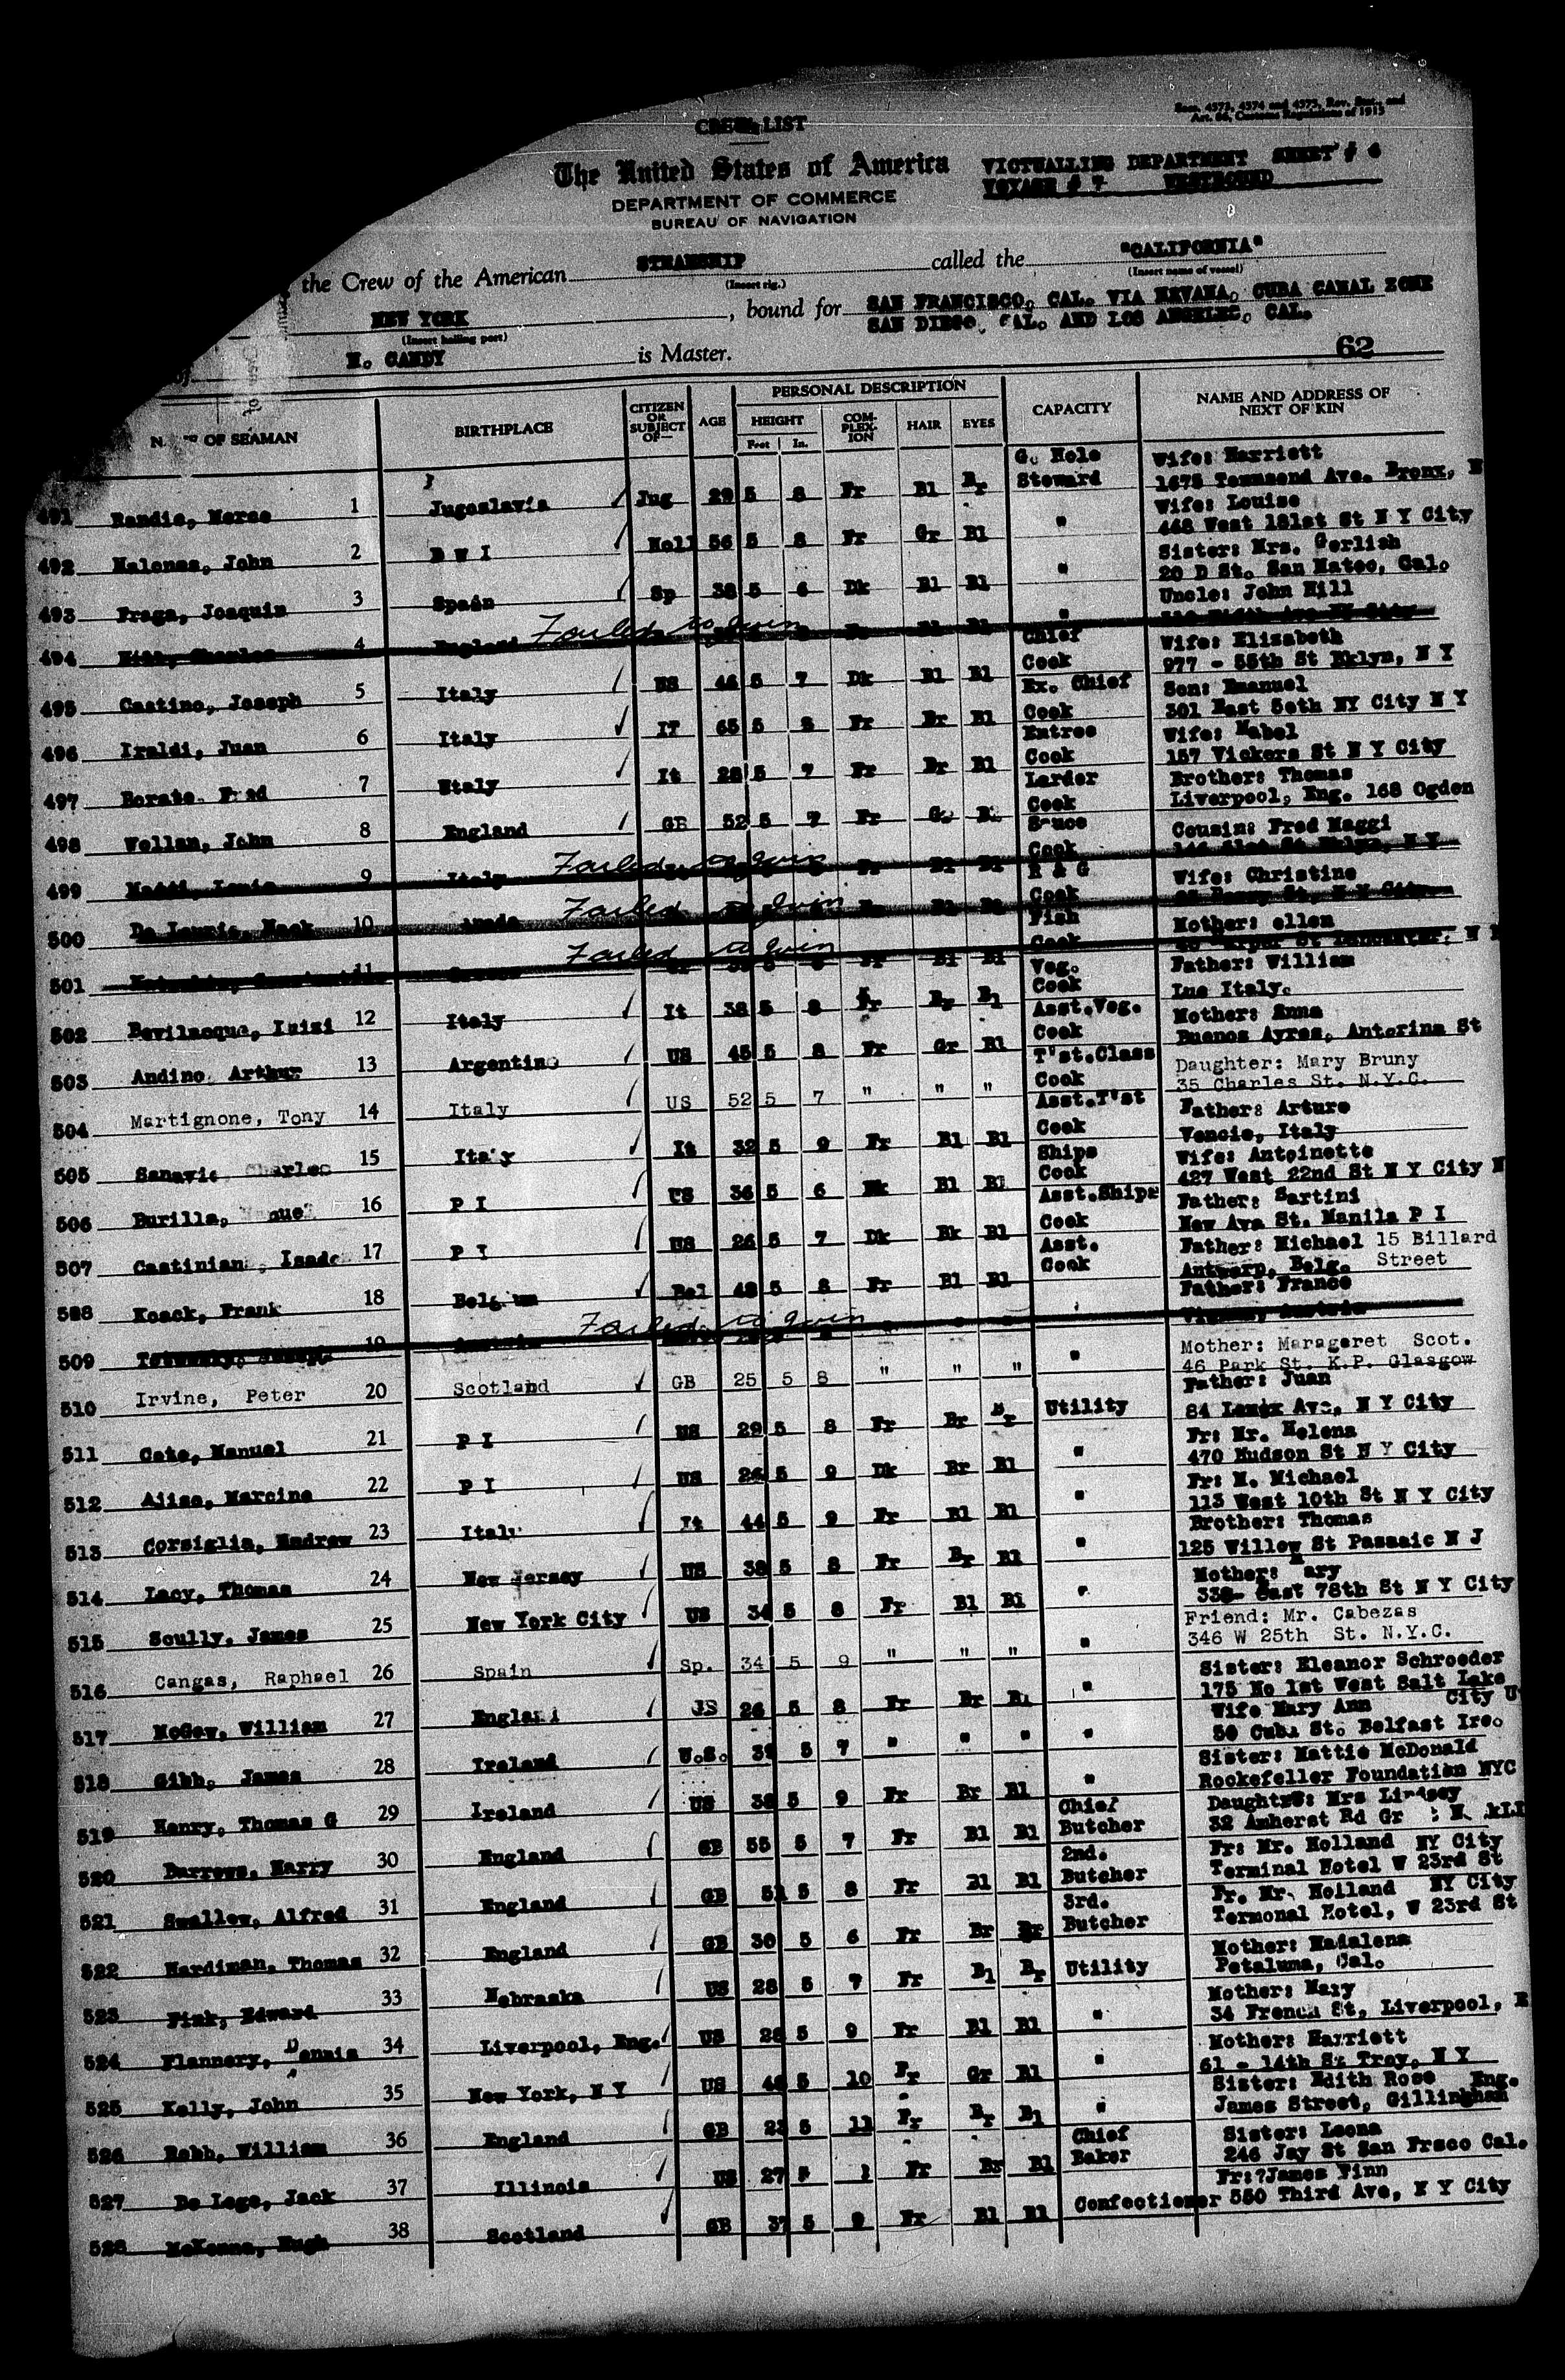 CREW LIST
Sec. 4573, 4574 and 4575, Rev. Stat., and
Art. 66, Customs Regulations of 1915
The United States of America
DEPARTMENT OF COMMERCE
BUREAU OF NAVIGATION
VICTUALLING DEPARTMENT SHEET # 6
VOYAGE # 7 WESTBOUND
the Crew of the American STEAMSHIP called the "CALIFORNIA"
(Insert rig.) (Insert name of vessel)
NEW YORK , bound for SAN FRANCISCO, CAL. VIA HAVANA, CUBA CANAL ZONE
(Insert hailing port) SAN DIEGO, CAL. AND LOS ANGELES, CAL.
of H. CANDY is Master.
62
OF SEAMAN BIRTHPLACE CITIZEN OR SUBJECT OF— AGE PERSONAL DESCRIPTION CAPACITY NAME AND ADDRESS OF NEXT OF KIN
HEIGHT COM-PLEX-ION HAIR EYES
Feet In.
491 1 Jugoslavia Jug 29 5 8 Fr Bl Br G. Hole Steward Wife: Harriett 1675 Townsend Ave. Bronx, N
492 John 2 D W I Holl 56 5 8 Fr Gr Bl " Wife: Louise 468 West 181st St N Y City
493 Fraga, Joaquin 3 Spain Sp 38 5 6 Dk Bl Bl " Sister: Mrs. Gerlish 20 D St. San Mateo, Cal.
494 Charles 4 England Failed to Join " Uncle: John Hill
495 Castino, Joseph 5 Italy US 46 5 7 Dk Bl Bl Chief Cook Wife: Elizabeth 977 - 55th St Bklyn, N Y
496 Iraldi, Juan 6 Italy IT 65 5 8 Fr Br Bl Ex. Chief Cook Son: Emanuel 301 East 50th NY City N Y
497 7 Italy It 28 5 7 Fr Br Bl Entree Cook Wife: Mabel 157 Vickers St N Y City
498 John 8 England GB 52 5 7 Fr Larder Cook Brother: Thomas Liverpool, Eng. 168 Ogden
499 Louis 9 Italy Failed to Join Sauce Cook Cousin: Fred Maggi
500 10 Failed to Join R & G Cook Wife: Christine
501 11 Failed to Join Fish Cook Mother: ellen
502 Bevilacqua, 12 Italy It 38 5 8 Fr Br Bl Veg. Cook Father: William Lue Italy.
503 Andino, Arthur 13 Argentino US 45 5 8 Fr Gr Bl Asst.Veg. Cook Mother: Anna Buenos Ayres, Antorina St
504 Martignone, Tony 14 Italy US 52 5 7 " " " T'st.Class Cook Daughter: Mary Bruny 35 Charles St. N.Y.C.
505 Charles 15 Italy It 32 5 9 Fr Bl Bl Asst.T'st Cook Father: Arturo Vencie, Italy
506 Burilla, 16 P I US 36 5 6 Dk Bl Bl Ships Cook Wife: Antoinette 427 West 22nd St N Y City N
507 17 P I US 26 5 7 Dk Bk Bl Asst.Ships Cook Father: Sartini New Ava St. Manila P I
508 Koack, Frank 18 Belgium Bel 48 5 8 Fr Bl Bl Asst. Cook Father: Michael 15 Billard Street Antwerp, Belg.
509 19 Failed to Join Father: France
510 Irvine, Peter 20 Scotland GB 25 5 8 " " " " Mother: Marageret Scot. 46 Park St. K.P. Glasgow
511 Manuel 21 P I US 29 5 8 Fr Br Br Utility Father: Juan 84 Lenox Ave, N Y City
512 22 P I US 26 5 9 Dk Br Bl " Fr: Mr. Helena 470 Hudson St N Y City
513 Corsiglia, Andrew 23 Italy It 44 5 9 Fr Bl Bl " Fr: M. Michael 113 West 10th St N Y City
514 Lacy, Thomas 24 New Jersey US 38 5 8 Fr Br Bl " Brother: Thomas 125 Willow St Passaic N J
515 Scully, James 25 New York City US 34 5 8 Fr Bl Bl " Mother: Mary 338- East 78th St N Y City
516 Cangas, Raphael 26 Spain Sp. 34 5 9 " " " " Friend: Mr. Cabezas 346 W 25th St. N.Y.C.
517 William 27 England US 26 5 8 Fr Br Bl " Sister: Eleanor Schroeder 175 No 1st West Salt Lake City U
518 Gibb, James 28 Ireland U.S. 39 5 7 " " " " Wife Mary Ann 50 Cuba St. Belfast Ire.
519 Henry, Thomas G 29 Ireland US 38 5 9 Fr Br Bl " Sister: Mattie McDonald Rockefeller Foundation NYC
520 Burrows, Harry 30 England GB 55 5 7 Fr Bl Bl Chief Butcher Mrs Lindsey 32 Amherst Rd
521 Swallow, Alfred 31 England GB 51 5 8 Fr Bl Bl 2nd. Butcher Fr: Mr. Holland NY City Terminal Hotel W 23rd St
522 Hardiman, Thomas 32 England GB 30 5 6 Fr Br Br 3rd. Butcher Fr. Mr. Holland NY City Termonal Hotel, W 23rd St
523 Fink, Edward 33 Nebraska US 28 5 7 Fr Bl Br Utility Mother: Madalena Petaluma, Cal.
524 Flannery, Dennis 34 Liverpool, Eng. US 28 5 9 Fr Bl Bl " Mother: Mary 34 French St, Liverpool, E
525 Kelly, John 35 New York, N Y US 46 5 10 Fr Gr Bl " Mother: Harriett 61 - 14th St Troy, N Y
526 Robb, William 36 England GB 23 5 11 Fr Br Bl " Sister: Edith Rose Eng. James Street, Gillingham
527 De Lege, Jack 37 Illinois US 27 5 1 Fr Br Bl Chief Baker Sister: Leona 246 Jay St San Fraco Cal.
528 McKenna, Hugh 38 Scotland GB 37 5 9 Fr Bl Bl Confectioner Fr:?James Finn 550 Third Ave, N Y City